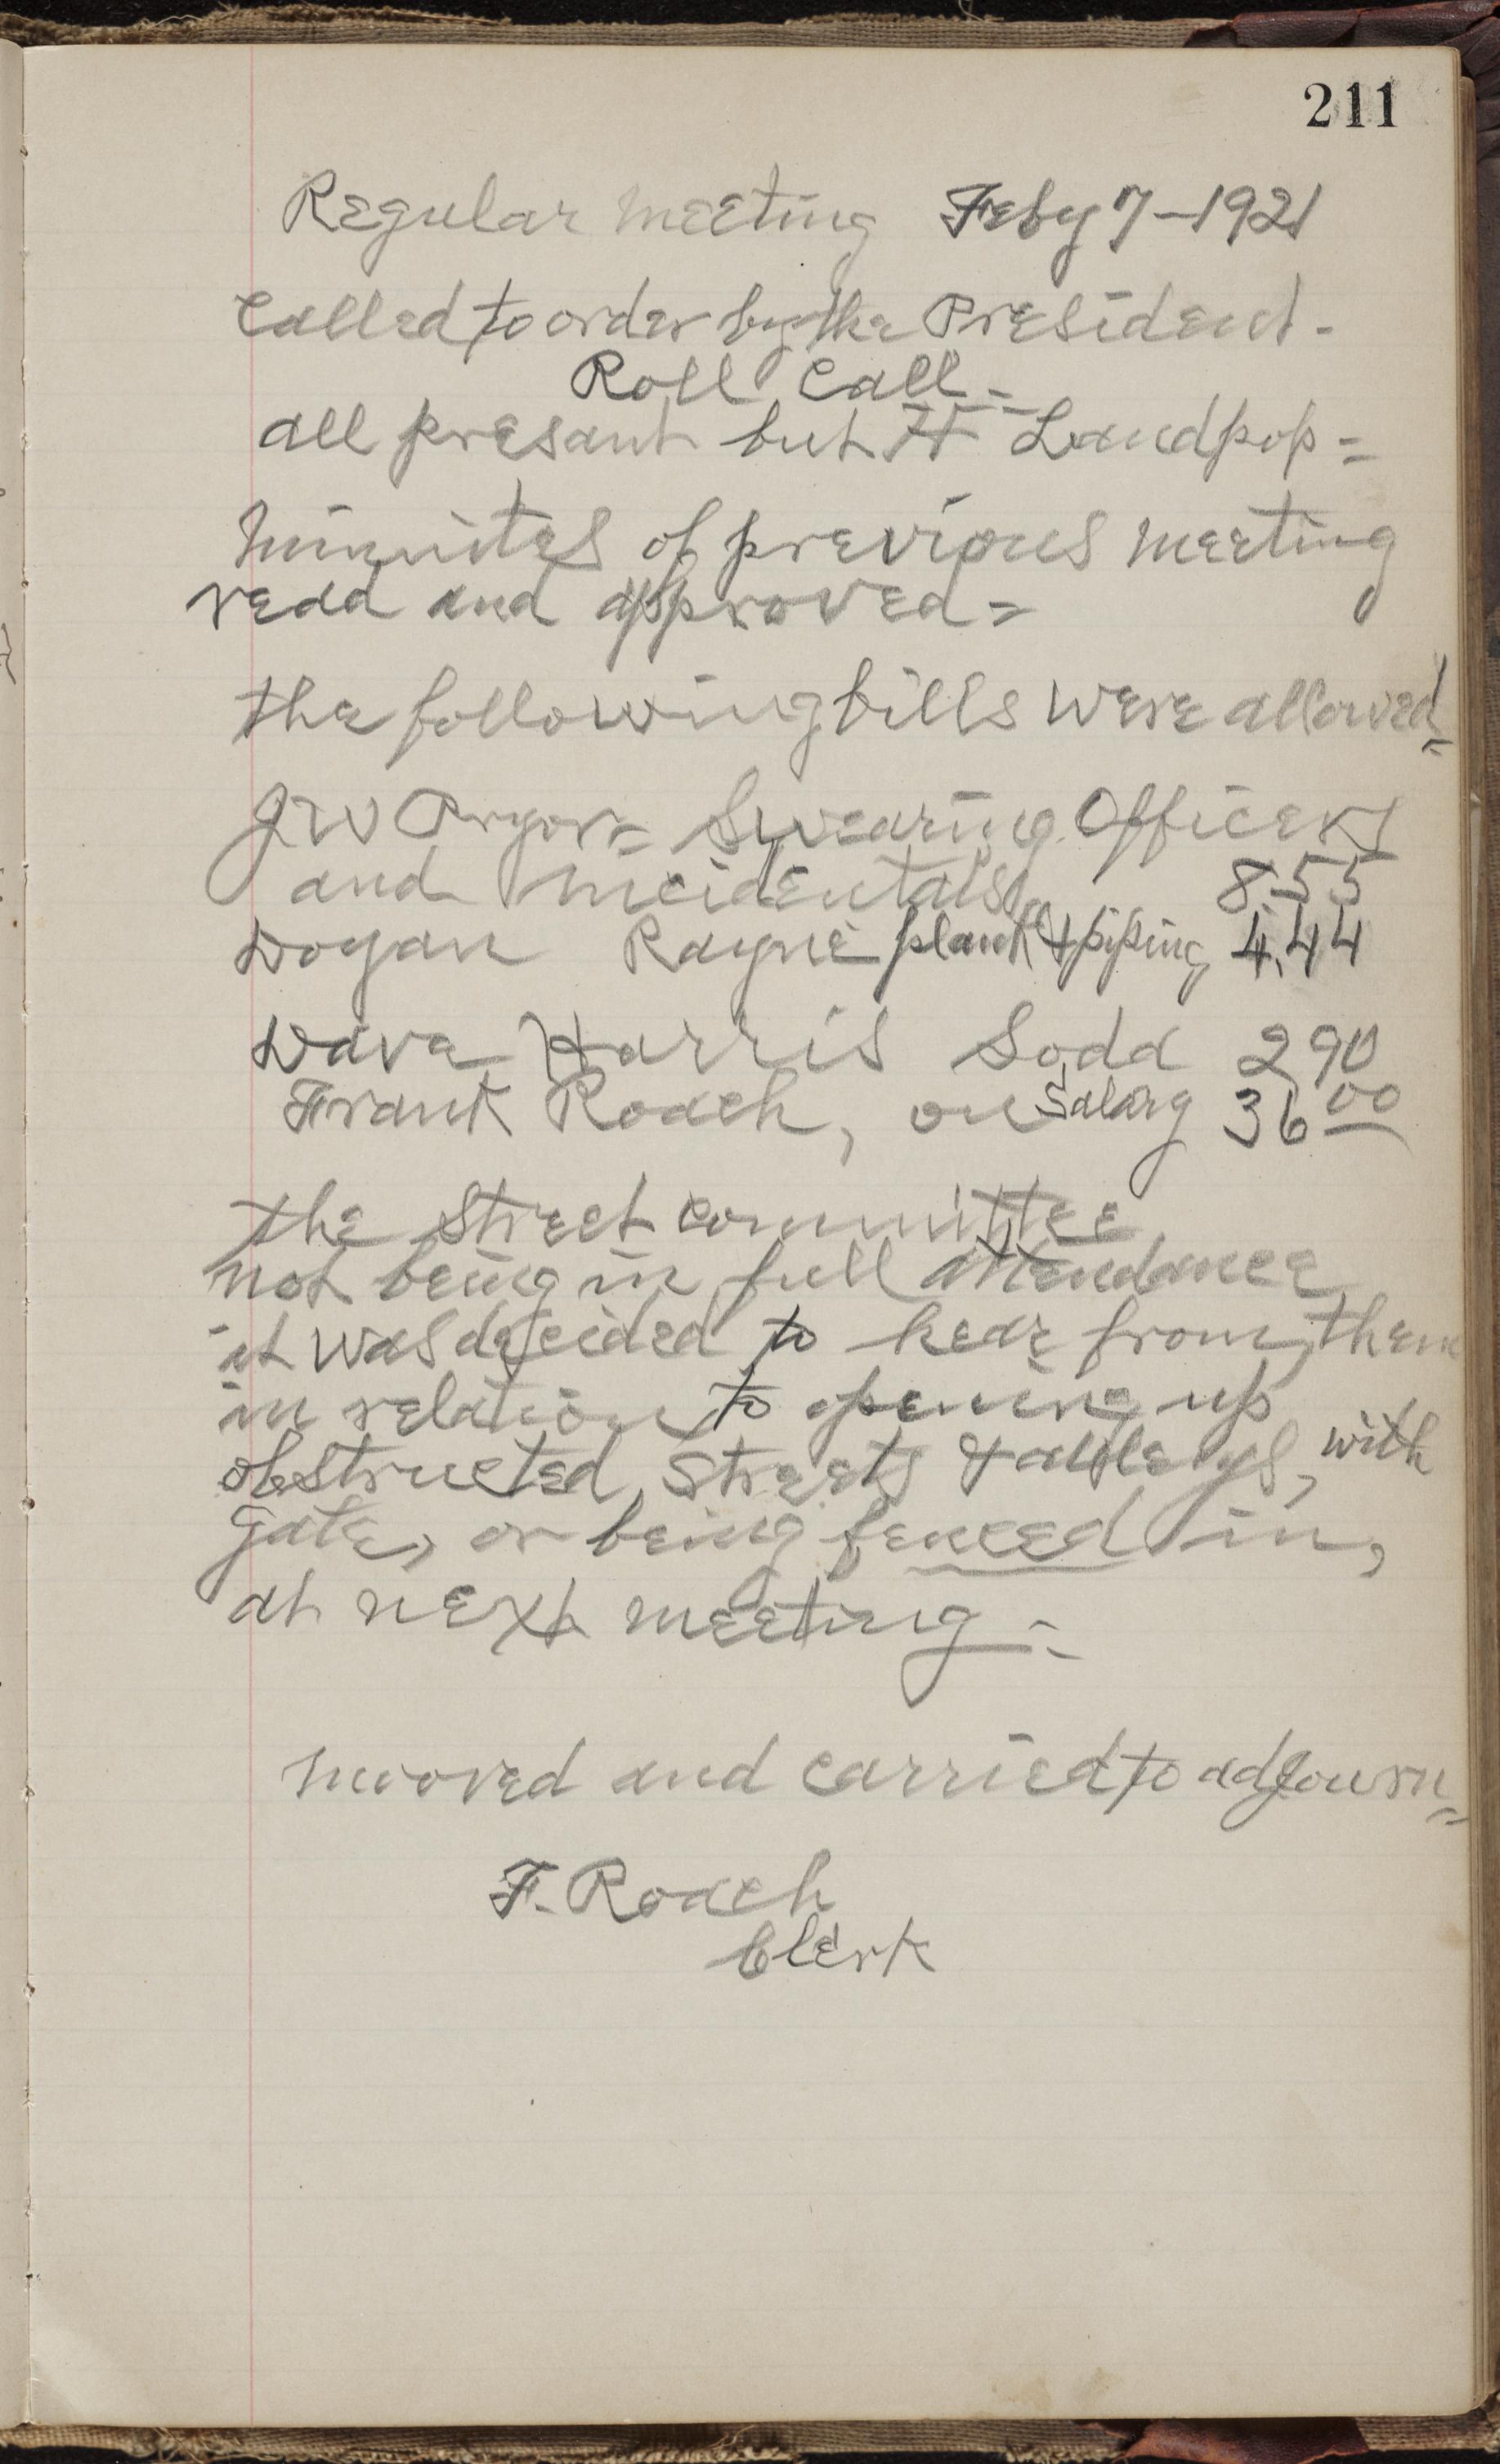 211
Regular meeting Feby 7-1921
Called to order by the President-
Roll Call--
all presant but H Landpop=
minuites of previous meeting
read and approved=
the following bills were allowed=
JW Pryor= Swearing Officers
and incidentals 8.55
Dogan Rayne plank & piping 4.44
Dave Harris Sodd 2 90
Frank Roach, on Salary 36 00
the Street committee
not being in full attendance
it was decided to hear from them
in relation to opening up
obstructed Streets & alleys, with
gates, or being fenced in,
at next meeting-
mooved and carried to adjourn=
F. Roach
Clerk